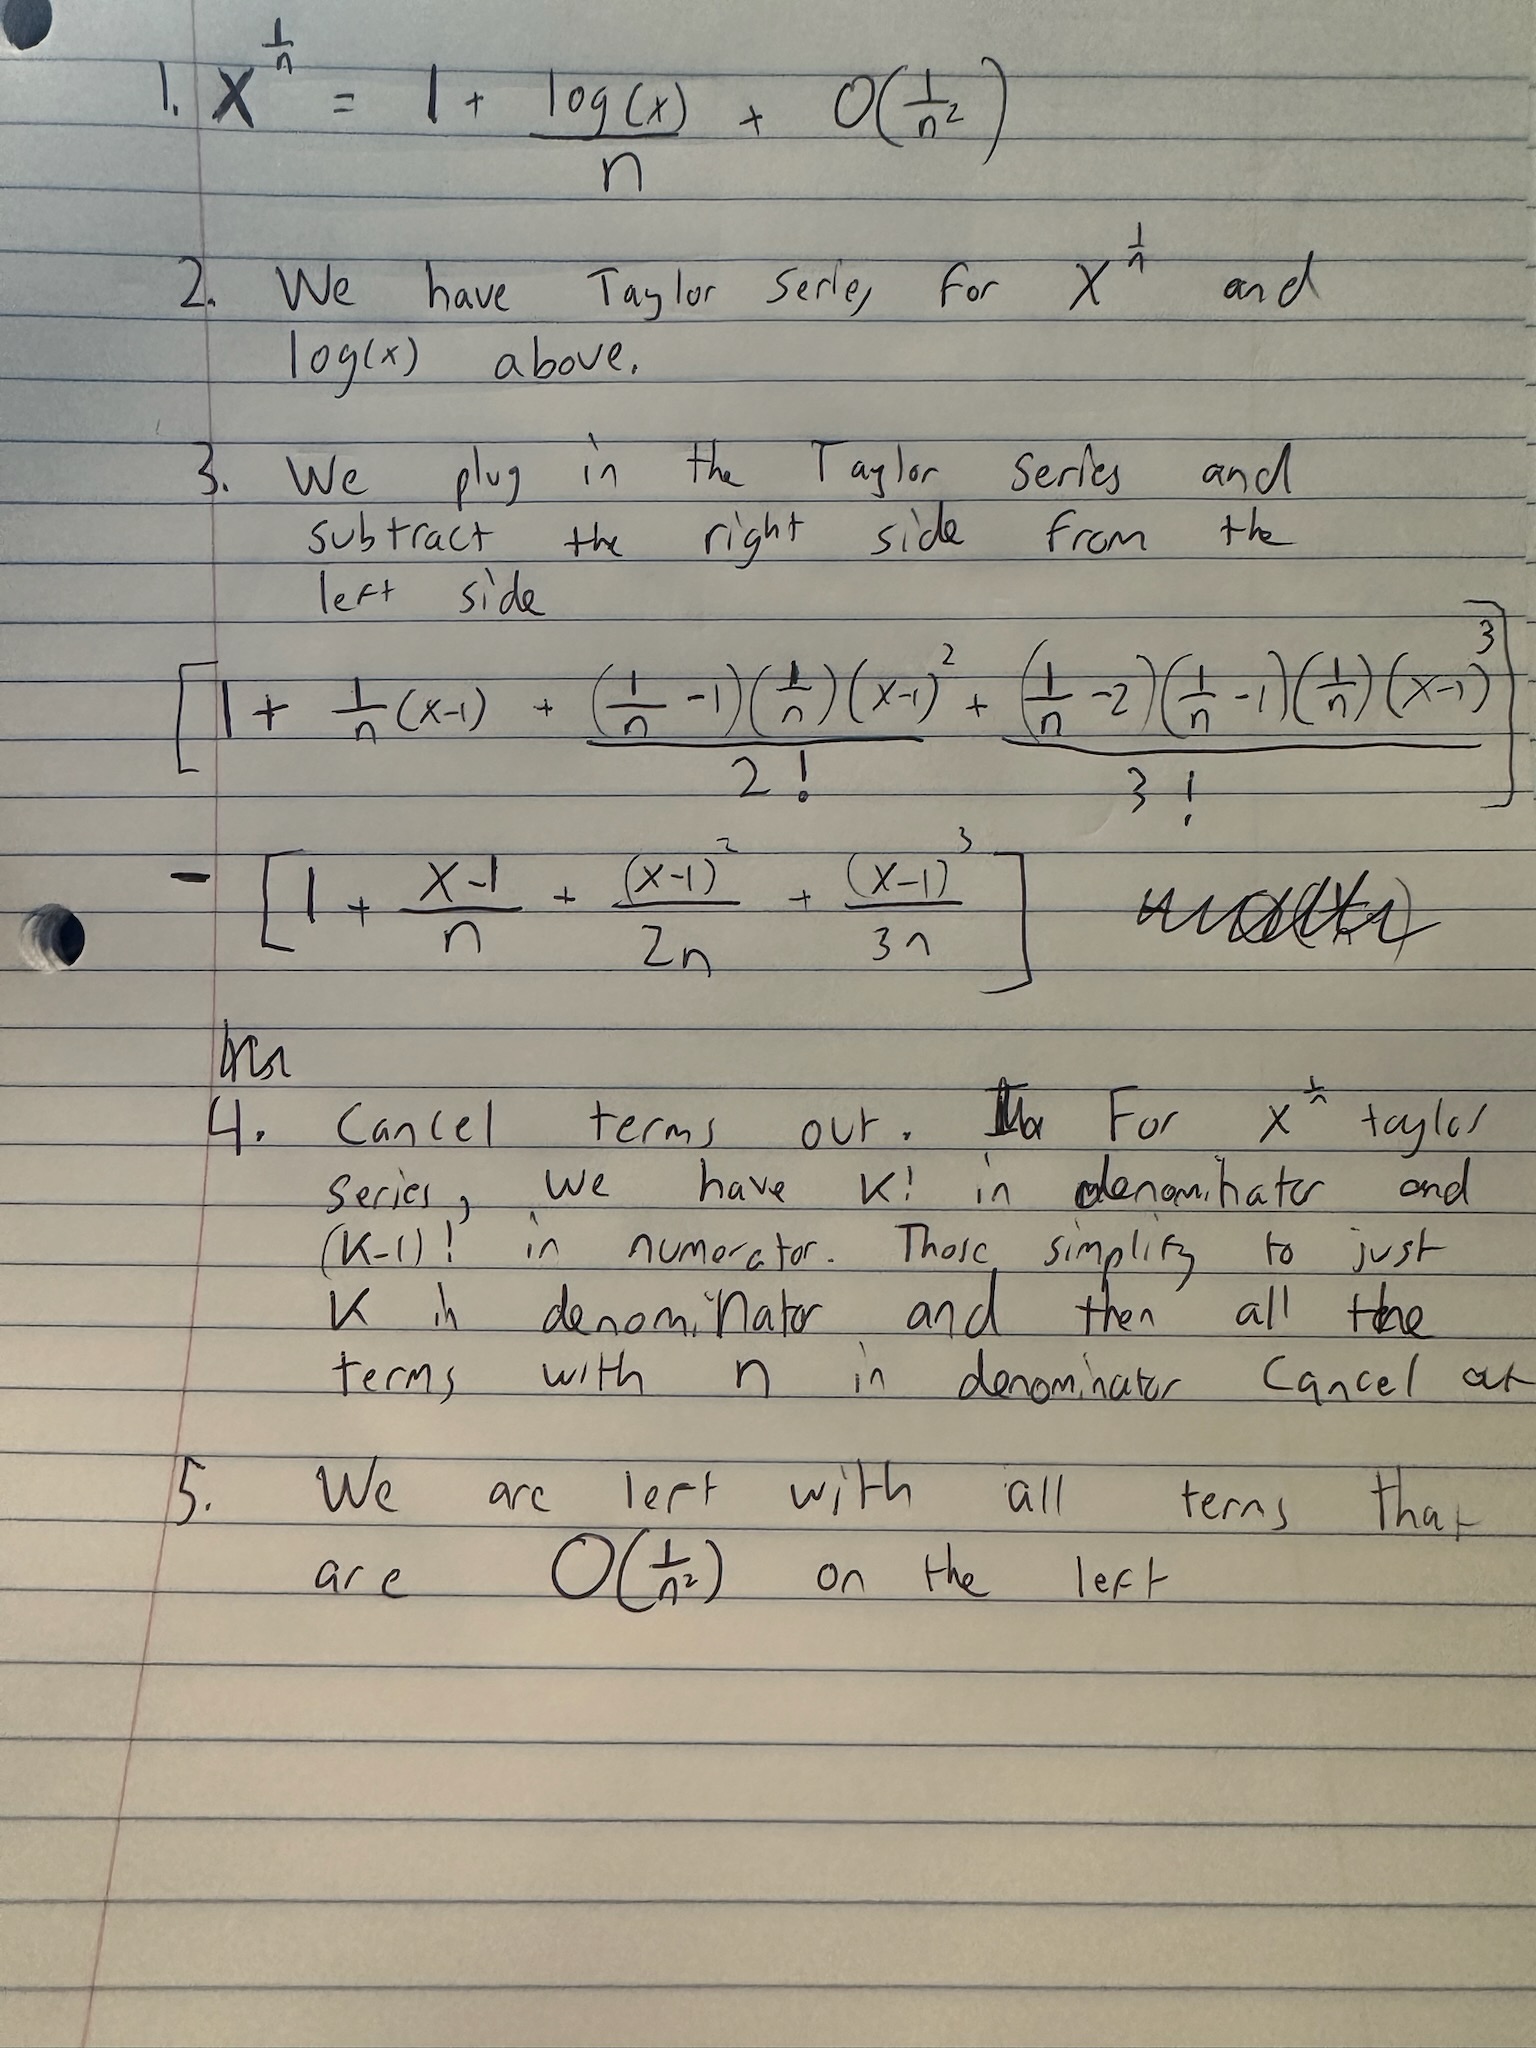 1. x^(1/n) = 1 + log(x)/n + O(1/n²)
2. We have Taylor Series for x^(1/n) and
log(x) above.
3. We plug in the Taylor Series and
subtract the right side from the
left side
[1 + 1/n (x-1) + (1/n -1)(1/n)(x-1)²/2! + (1/n -2)(1/n -1)(1/n)(x-1)³/3!]
- [1 + (x-1)/n + (x-1)²/2n + (x-1)³/3n]
4. Cancel terms out. For x^(1/n) taylor
series, we have K! in denominator and
(K-1)! in numerator. Those simplify to just
K in denominator and then all the
terms with n in denominator Cancel out
5. We are left with all terms that
are O(1/n²) on the left